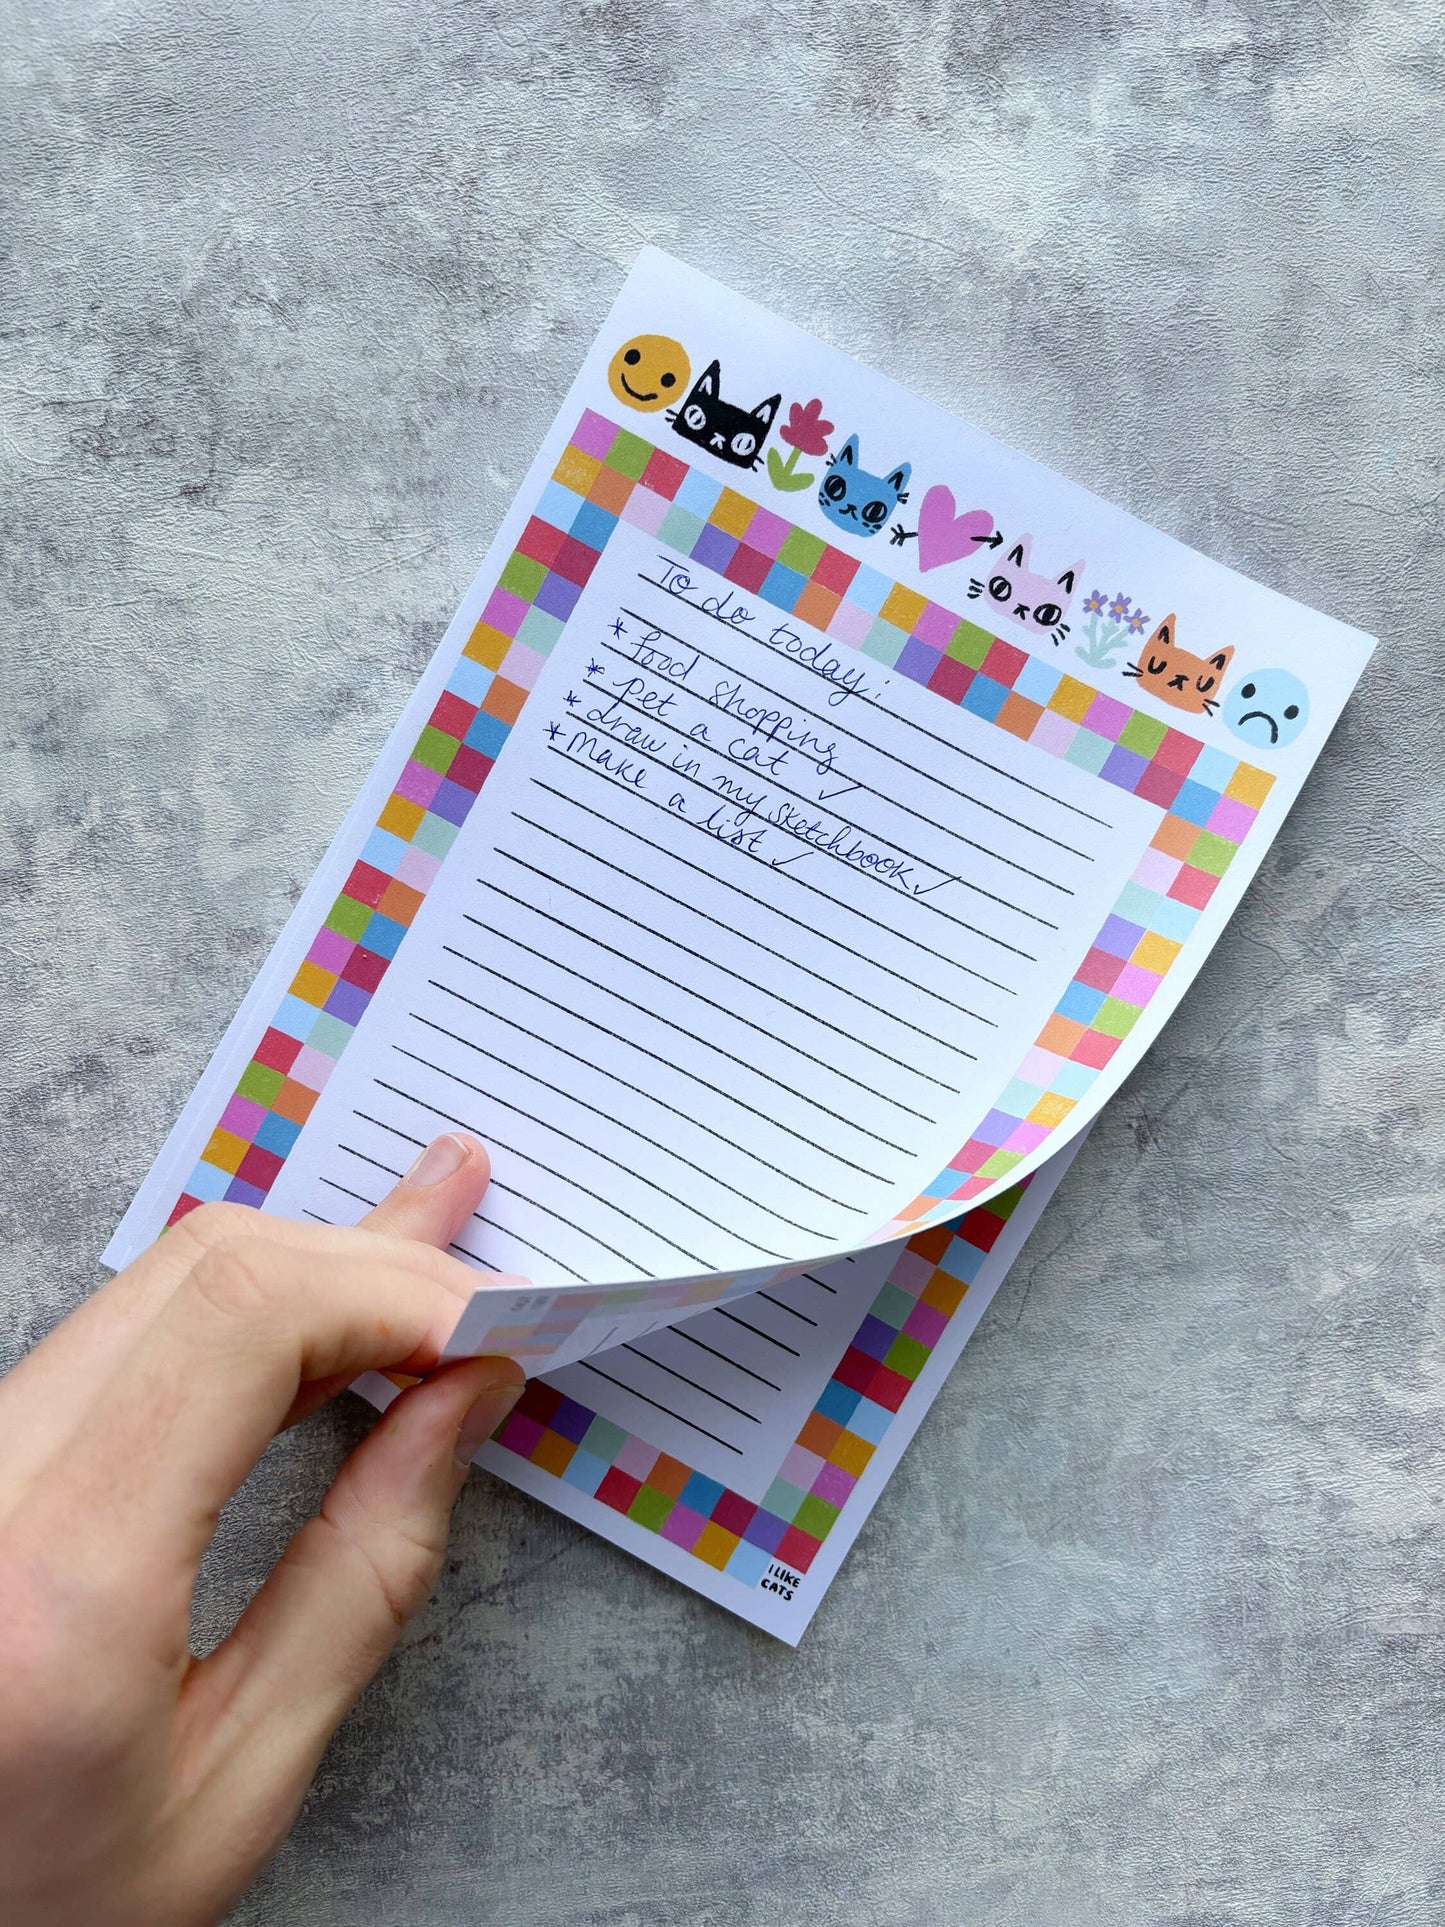 To do today:
* food shopping
* pet a cat ✓
* draw in my sketchbook ✓
* make a list ✓
I LIKE
CATS